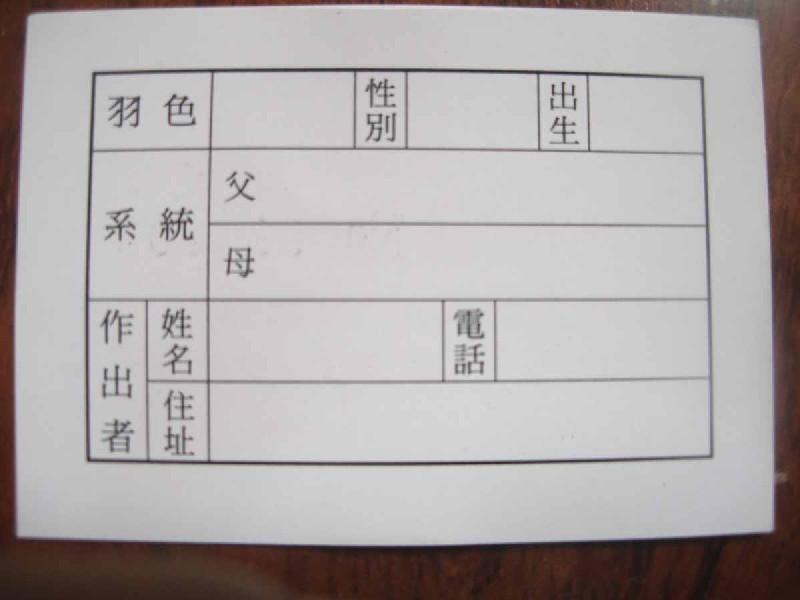 羽色 性別 出生
系統 父
母
作出者 姓名 電話
住址